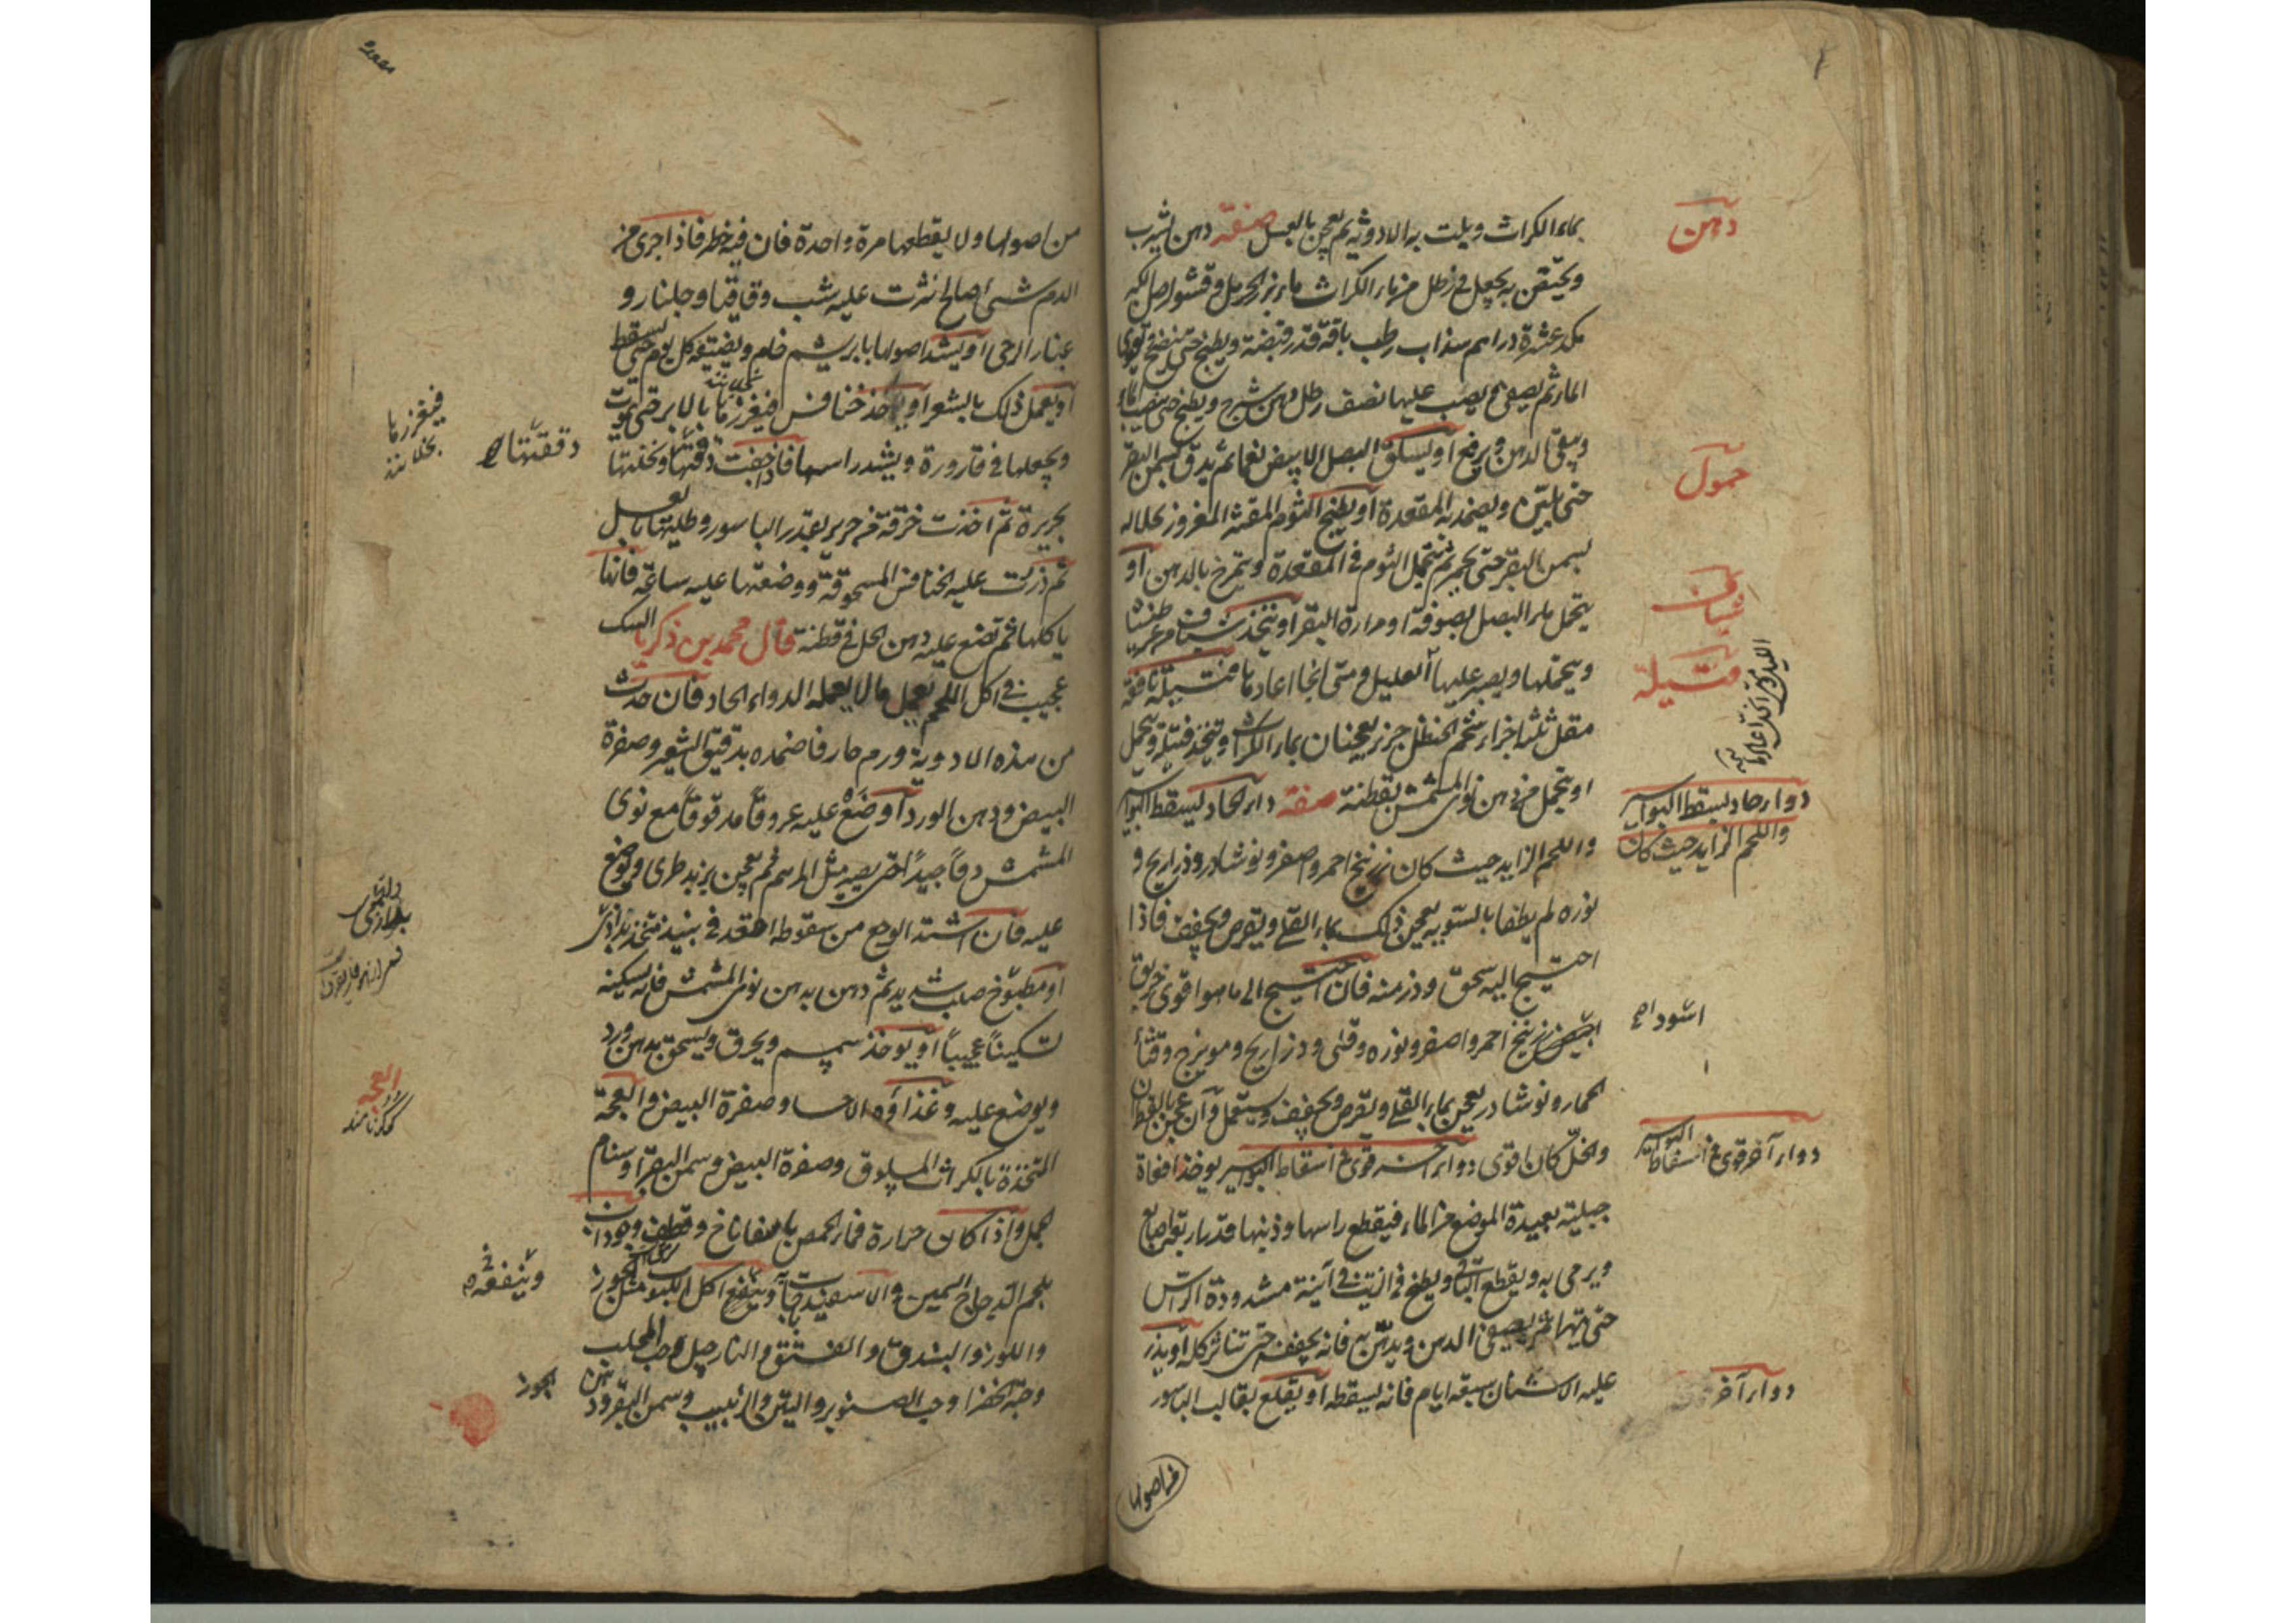 بماء الكراث ويلت به الادوية ثم يعجن بالعسل صفة دهن يشرب
ويحتقن به يجعل في رطل من ماء الكراث ماء بزر الحرمل وقشور اصل الكبر
مكد عشرة دراهم سذاب رطب باقة قدر قبضة ويطبخ حتى ينضج قوى
الماء ثم يصفى يصب عليها نصف رطل دهن شيرج ويطبخ حتى ينضب الماء
ويبقى الدهن ويرفع او يسلق البصل الابيض نعما ثم يدق بسمن البقر
حتى يلين ويضمد به المقعدة او يطبخ الثوم المقشر المغروز بخلاله
بسمن البقر حتى يحمر ثم يتحمل الثوم في المقعدة وتمرخ بالدهن او
يتحمل ماء البصل بصوفة او مرارة البقر او تتخذ شياف من عرطنيثا
ويتحملها ويصبر عليها العليل ومتى انجا اعادها فتيلة نافعة
مقل ثلثة اجزاء شحم الحنظل جزء يعجنان بماء الكراث وتتخذ فتيلة ويتحمل
او يتحمل من دهن نوى المشمش بقطنة صفة دواء حاد ليسقط البواسير
واللحم الزايد حيث كان زرنيخ احمر واصفر ونوشادر وذراريح و
نوره لم يطفا بالسوية يعجن ذلك بماء القلي ويقرص ويجفف فاذا
احتيج اليه سحق وذر منه فان احتيج الى ما هو اقوى خربق
ابيض زرنيخ احمر واصفر ونوره وقلى وذراريح ومويزج وقثاء
الحمار ونوشادر يعجن بماء القلي ويقرص ويجفف ويستعمل وان عجن بالقطران
والخل كان اقوى دواء اخر قوى في اسقاط البواسير يوخذ افعاة
جبلية بعيدة الموضع من الماء فيقطع راسها وذنبها قدر اربع اصابع
ويرمى به ويقطع الباقي ويطبخ في الزيت في آنية مشدودة الراس
حتى يتهرا ثم يصفى الدهن ويدهن به فانه يجففه حتى تناثر كله او يذر
عليه الاشنان سبعة ايام فانه يسقطه او يقلع بقالب الباسور
من اصولها
دهن
حمول
شياف
فتيلة
دواء حاد ليسقط البواسير
واللحم الزايد حيث كان
اسود اصح
دواء آخر قوى في اسقاط البواسير
دواء آخر
من اصولها ولا يقطعها مرة واحدة فان فيه خطر فاذا جرى من
الدم شيئ صالح نثرت عليه شب وقاقيا وجلنار و
غبار الرحى او يشد اصولها بابريشم خام ويضيقه كل يوم حتى يسقط
او يعمل ذلك بالشعر او يوخذ خنافس فيغرزها بالابر حتى تموت
ويجعلها في قارورة ويشد راسها فاذا جفت دققتها ونخلتها
بحريرة ثم اخذت خرقة من حرير بقدر الباسور وطليتها بالعسل
ثم ذررت عليه الخنافس المسحوقة ووضعتها عليه ساعة فانها
ياكلها ثم تضع عليه دهن الحل في قطنة قال محمد بن زكريا السك
عجيب في اكل اللحم يعمل ما لا يعمله الدواء الحاد فان حدث
من هذه الادوية ورم حار فاضمده بدقيق الشعير وصفرة
البيض ودهن الورد او ضع عليه عروقا مدقوقا مع نوى
المشمش دقا جيدا حتى يصير مثل المرهم ثم يعجن بزبد طرى ويوضع
عليه فان اشتد الوجع من سقوطه اقعد في نبيذ متخذ بداذى
او مطبوخ صلب شديد ثم دهن بدهن نوى المشمش فانه يسكنه
تسكينا عجيبا او يوخذ سمسم ويحرق ويسحق بدهن ورد
ويوضع عليه وغذاؤه الاحساء وصفرة البيض والعجة
المتخذة بالكراث المسلوق وصفرة البيض وسمن البقر او سنام
الجمل واذا كان حرارة فماء الحمص باسفاناخ وقطف وجوذاب
بلحم الدجاج السمين والاسفيذباجات وينفع اكل اللبوب مثل الجوز
واللوز والبندق والفستق والنارجيل وحب المحلب
وحبة الخضرا وحب الصنوبر والتين والزبيب وسمن البقر ودهن
الجوز
فيغرزها
بخلا نند
دققتها صح
العجة
وينفعه